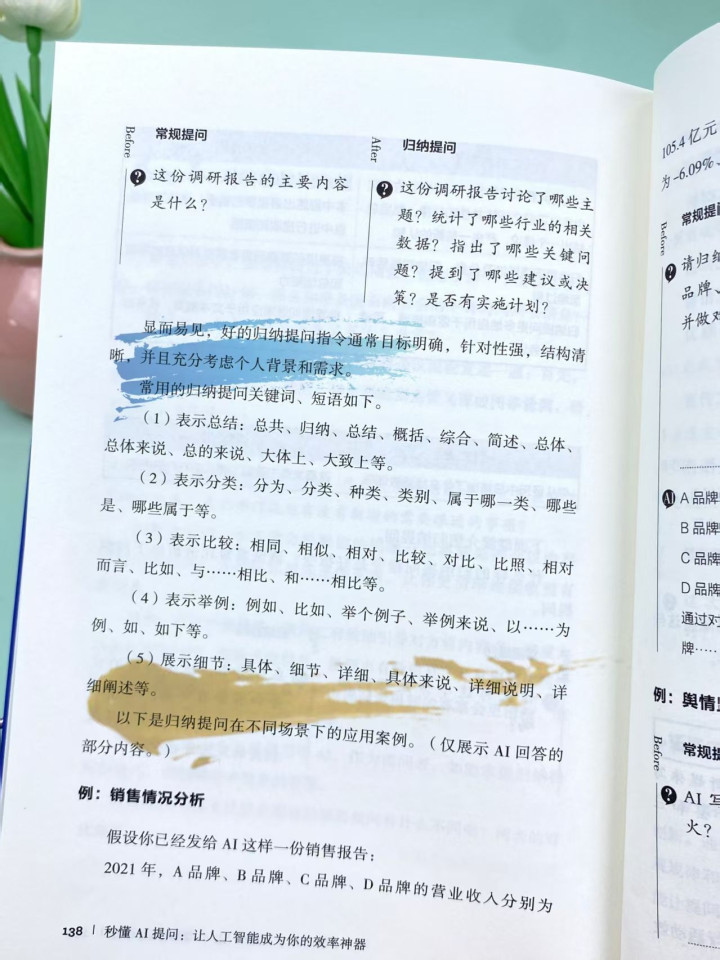 Before
常规提问
这份调研报告的主要内容
是什么？
After
归纳提问
这份调研报告讨论了哪些主
题？统计了哪些行业的相关
数据？指出了哪些关键问
题？提到了哪些建议或决
策？是否有实施计划？
显而易见，好的归纳提问指令通常目标明确，针对性强，结构清
晰，并且充分考虑个人背景和需求。
常用的归纳提问关键词、短语如下。
（1）表示总结：总共、归纳、总结、概括、综合、简述、总体、
总体来说、总的来说、大体上、大致上等。
（2）表示分类：分为、分类、种类、类别、属于哪一类、哪些
是、哪些属于等。
（3）表示比较：相同、相似、相对、比较、对比、比照、相对
而言、比如、与……相比、和……相比等。
（4）表示举例：例如、比如、举个例子、举例来说、以……为
例、如、如下等。
（5）展示细节：具体、细节、详细、具体来说、详细说明、详
细阐述等。
以下是归纳提问在不同场景下的应用案例。（仅展示 AI 回答的
部分内容。）
例：销售情况分析
假设你已经发给 AI 这样一份销售报告：
2021 年，A 品牌、B 品牌、C 品牌、D 品牌的营业收入分别为
138 | 秒懂 AI 提问：让人工智能成为你的效率神器
105.4 亿元
为 -6.09%、
Before
常规提
请归纳
品牌、
并做对
AI
A 品牌
B 品牌
C 品牌
D 品牌
通过对
牌……
例：舆情
Before
常规提
AI 写
火？